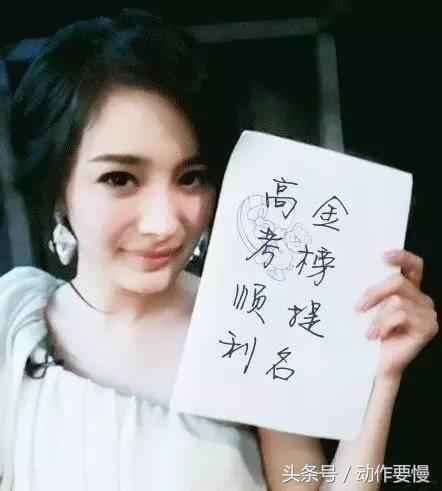 高考顺利
金榜提名
头条号 / 动作要慢